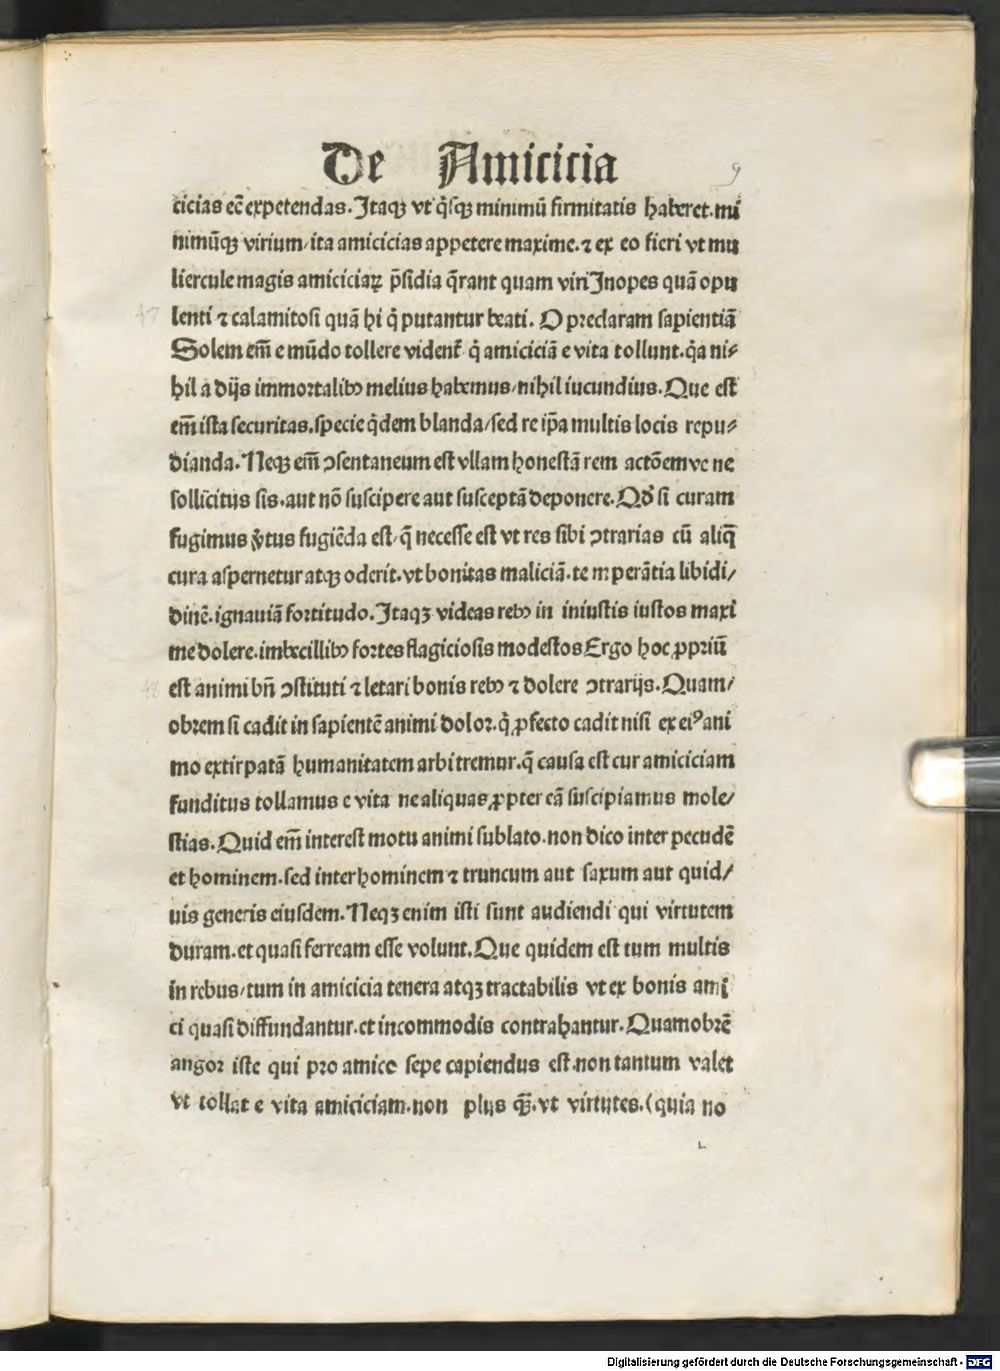 De Amicicia
9
cicias eē expetendas. Itaqꝫ vt q̇sqꝫ minimū firmitatis haberet. mi
nimūqꝫ virium/ ita amicicias appetere maxime. ⁊ ex eo fieri vt mu
liercule magis amiciciaꝝ p̄sidia q̄rant quam viri Inopes quā opu
47 lenti ⁊ calamitosi quā hi q̇ putantur beati. O preclaram sapientiā
Solem em̄ e mūdo tollere vident᷑ q̇ amiciciā e vita tollunt. q̇a ni⸗
hil a dijs immortalibꝰ melius habemus/ nihil iucundius. Que est
em̄ ista securitas. specie q̇dem blanda/ sed re ip̄a multis locis repu⸗
dianda. Neqꝫ em̄ ɔsentaneum est vllam honestā rem actōemve ne
sollicitus sis. aut nō suscipere aut susceptā deponere. Qd̓ si curam
fugimus v̓tus fugiēda est/ q̄ necesse est vt res sibi ɔtrarias cū aliq̄
cura aspernetur atqꝫ oderit. vt bonitas maliciā. temperātia libidi/
dinē. ignauiā fortitudo. Itaqꝫ videas rebꝰ in iniustis iustos maxi
me dolere. imbecillibꝰ fortes flagiciosis modestos Ergo hoc ꝓpriū
48 est animi bn̄ ɔstituti ⁊ letari bonis rebꝰ ⁊ dolere ɔtrarijs. Quam/
obrem si cadit in sapientē animi dolor. q̇ ꝓfecto cadit nisi ex eiꝰ ani
mo extirpatā humanitatem arbitremur. q̄ causa est cur amiciciam
funditus tollamus e vita ne aliquas ꝓpter eā suscipiamus mole/
stias. Quid em̄ interest motu animi sublato. non dico inter pecudē
et hominem. sed inter hominem ⁊ truncum aut saxum aut quid/
uis generis eiusdem. Neqꝫ enim isti sunt audiendi qui virtutem
duram. et quasi ferream esse volunt. Que quidem est tum multis
in rebus/ tum in amicicia tenera atqꝫ tractabilis vt ex bonis ami
ci quasi diffundantur. et incommodis contrahantur. Quamobrē
angor iste qui pro amico sepe capiendus est. non tantum valet
vt tollat e vita amiciciam. non plus qꝫ̄. vt virtutes. (quia no
Digitalisierung gefördert durch die Deutsche Forschungsgemeinschaft - DFG